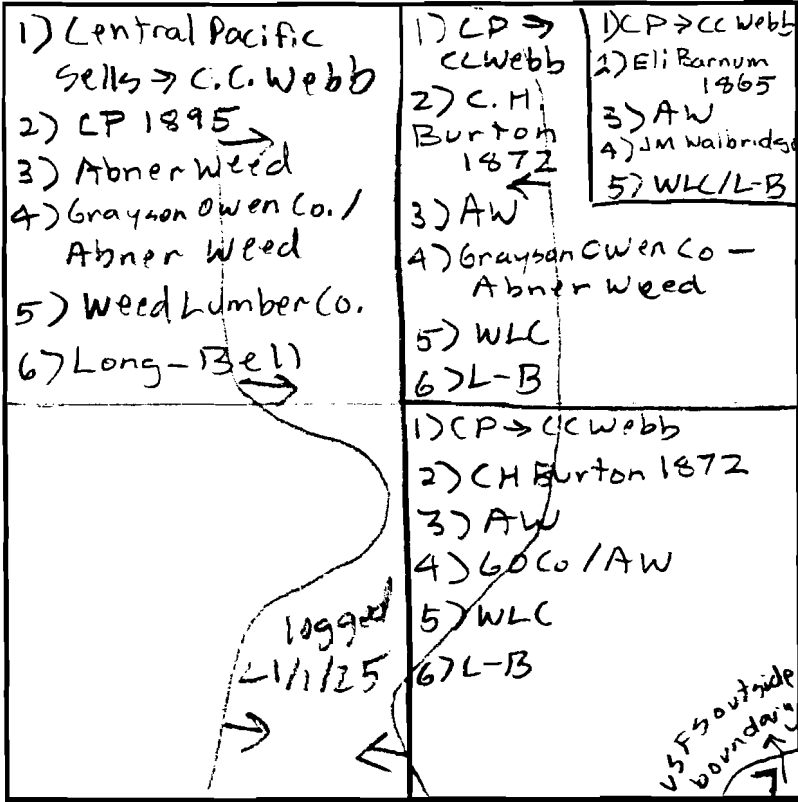 1) Central Pacific
Sells → C.C. Webb
2) CP 1895
3) Abner Weed
4) Grayson Owen Co. /
Abner Weed
5) Weed Lumber Co.
6) Long-Bell
1) CP →
CC Webb
2) C. H.
Burton
1872
3) AW
4) Grayson Owen Co –
Abner Weed
5) WLC
6) L-B
1) CP → CC Webb
2) Eli Barnum
1865
3) AW
4) JM Walbridge
5) WLC/L-B
1) CP → CC Webb
2) CH Burton 1872
3) AW
4) GO Co / AW
5) WLC
6) L-B
logged
1/1/25
USFS outside
boundary